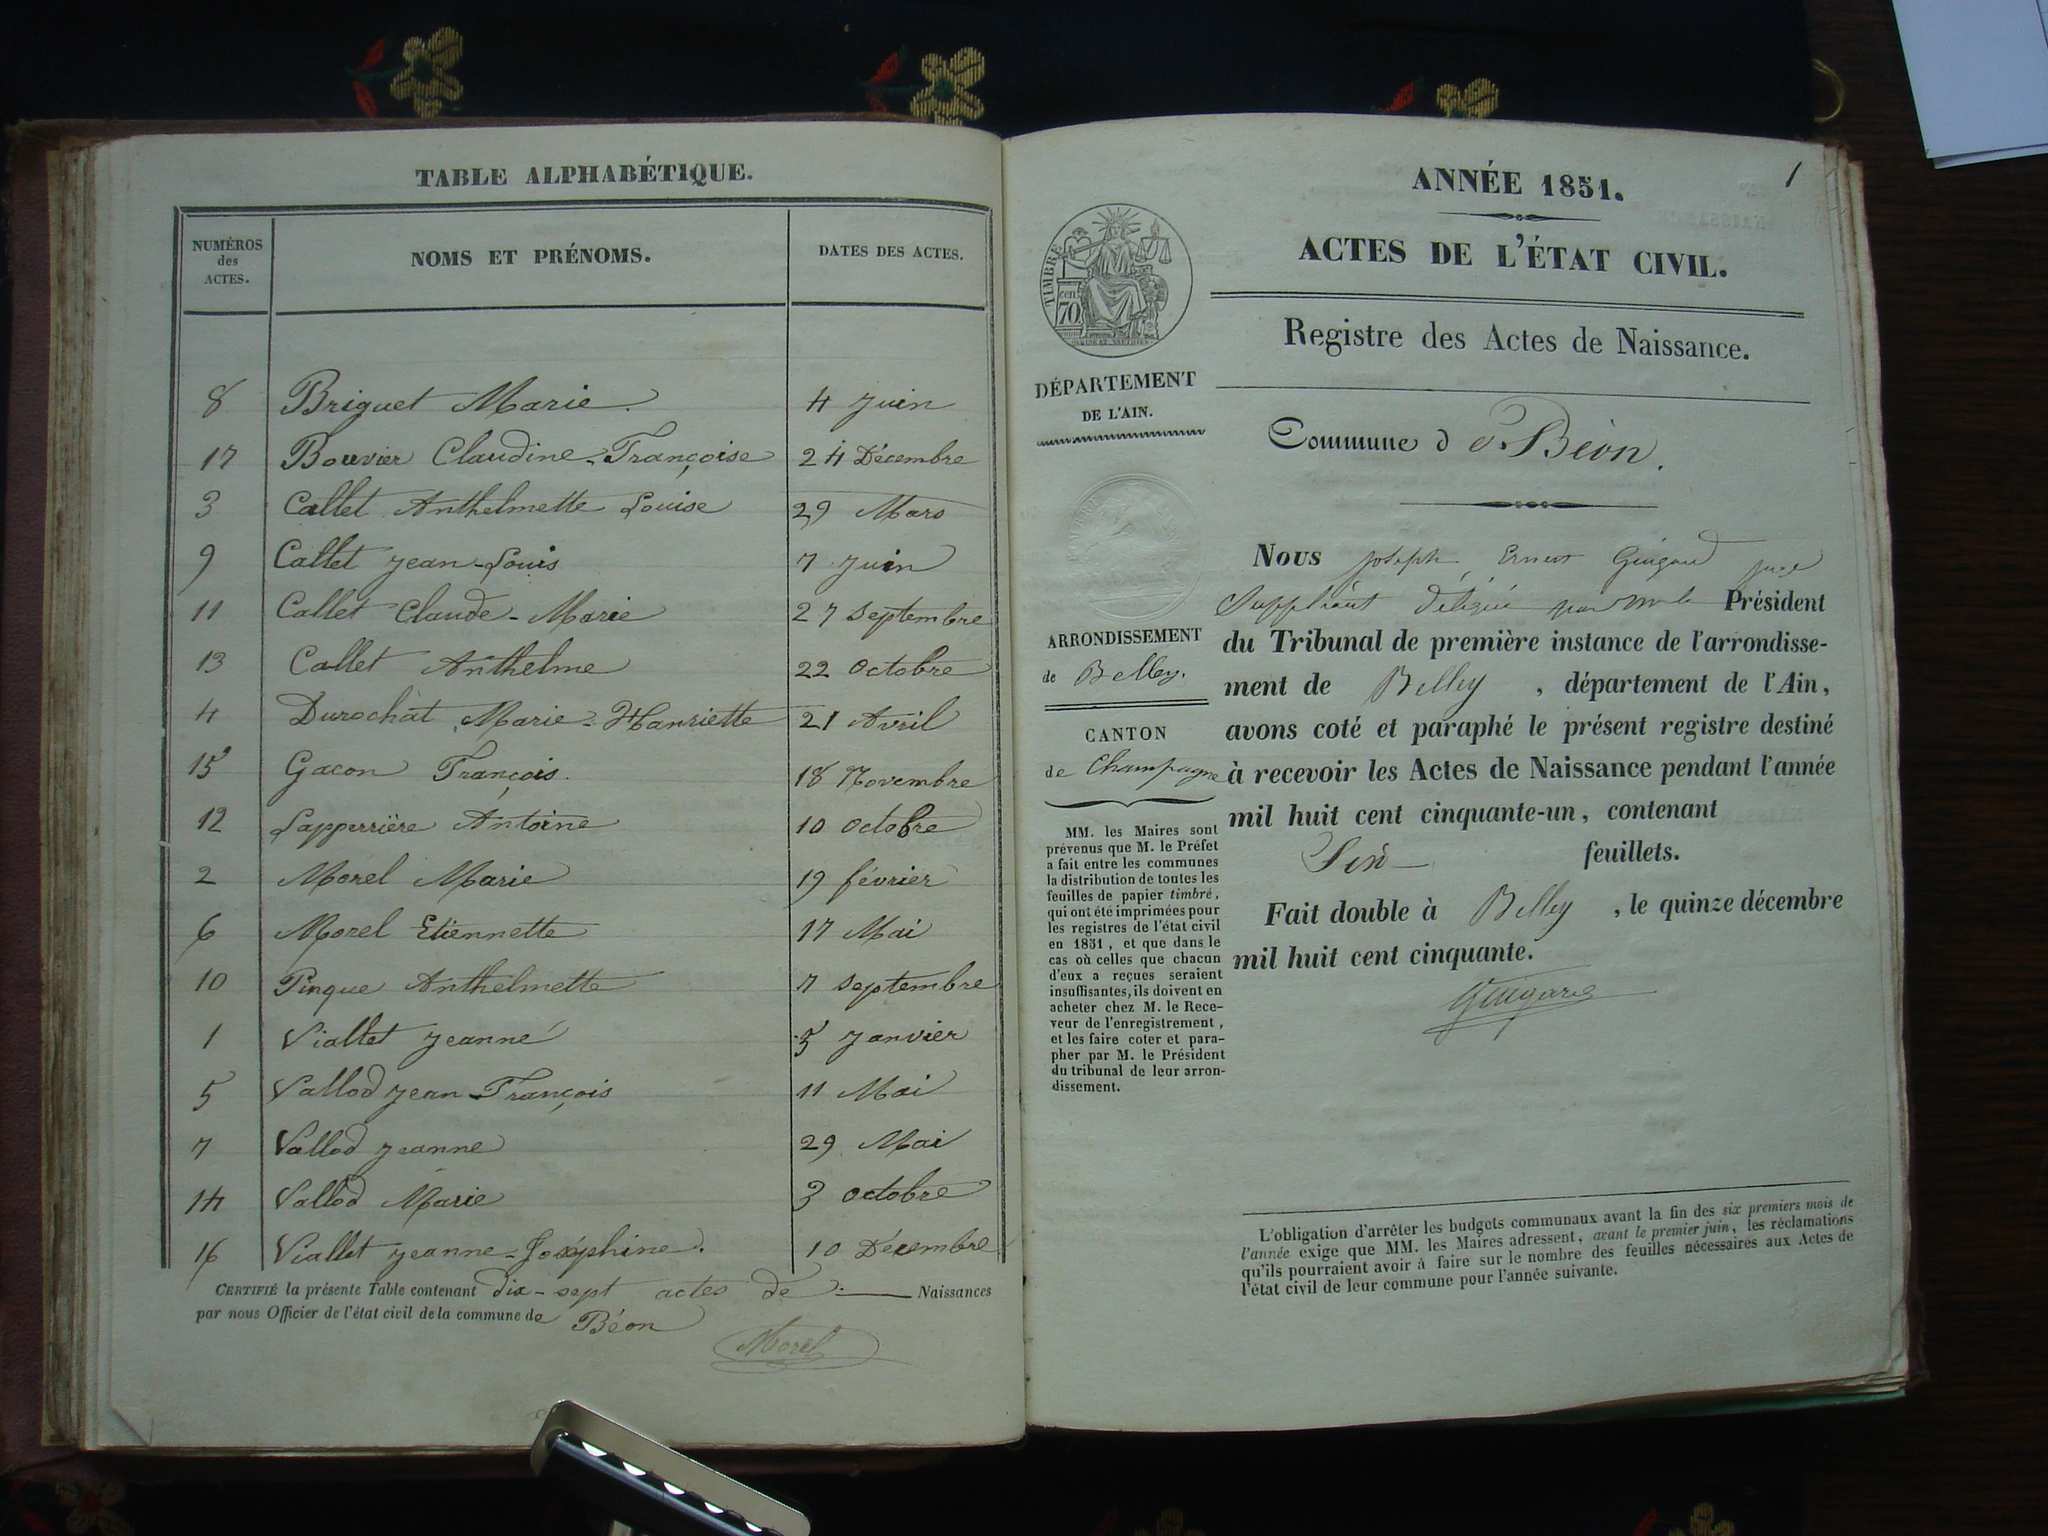 TABLE ALPHABÉTIQUE.
NUMÉROS des ACTES.
NOMS ET PRÉNOMS.
DATES DES ACTES.
8 Briguet Marie. 4 Juin
17 Bouvier Claudine-Françoise 24 Décembre
3 Callet Anthelmette Louise 29 Mars
9 Callet Jean-Louis 7 Juin
11 Callet Claude-Marie 27 Septembre
13 Callet Anthelme 22 Octobre
4 Durochat Marie-Hanriette 21 Avril
15 Gacon François. 18 Novembre
12 Lapperrière Antoine 10 Octobre
2 Morel Marie 19 février
6 Morel Etiennette 17 Mai
10 Pinque Anthelmette 7 Septembre
1 Viallet Jeanne 5 Janvier
5 Vallod Jean-François 11 Mai
7 Vallod Jeanne 29 Mai
14 Vallod Marie 3 Octobre
16 Viallet Jeanne-Joséphine. 10 Décembre
CERTIFIÉ la présente Table contenant dix-sept actes de Naissances
par nous Officier de l'état civil de la commune de Béon
Morel
1
ANNÉE 1851.
ACTES DE L'ÉTAT CIVIL.
Registre des Actes de Naissance.
TIMBRE
70 cen
DÉPARTEMENT
DE L'AIN.
Commune d e Béon.
ARRONDISSEMENT
de Belley.
CANTON
de Champagne
MM. les Maires sont
prévenus que M. le Préfet
a fait entre les communes
la distribution de toutes les
feuilles de papier timbré,
qui ont été imprimées pour
les registres de l'état civil
en 1851, et que dans le
cas où celles que chacun
d'eux a reçues seraient
insuffisantes, ils doivent en
acheter chez M. le Rece-
veur de l'enregistrement,
et les faire coter et para-
pher par M. le Président
du tribunal de leur arron-
dissement.
Nous Joseph Ernest Guigard juge
Suppléant délégué par Mr le Président
du Tribunal de première instance de l'arrondisse-
ment de Belley, département de l'Ain,
avons coté et paraphé le présent registre destiné
à recevoir les Actes de Naissance pendant l'année
mil huit cent cinquante-un, contenant
Six feuillets.
Fait double à Belley, le quinze décembre
mil huit cent cinquante.
Guigard
L'obligation d'arrêter les budgets communaux avant la fin des six premiers mois de
l'année exige que MM. les Maires adressent, avant le premier juin, les réclamations
qu'ils pourraient avoir à faire sur le nombre des feuilles nécessaires aux Actes de
l'état civil de leur commune pour l'année suivante.